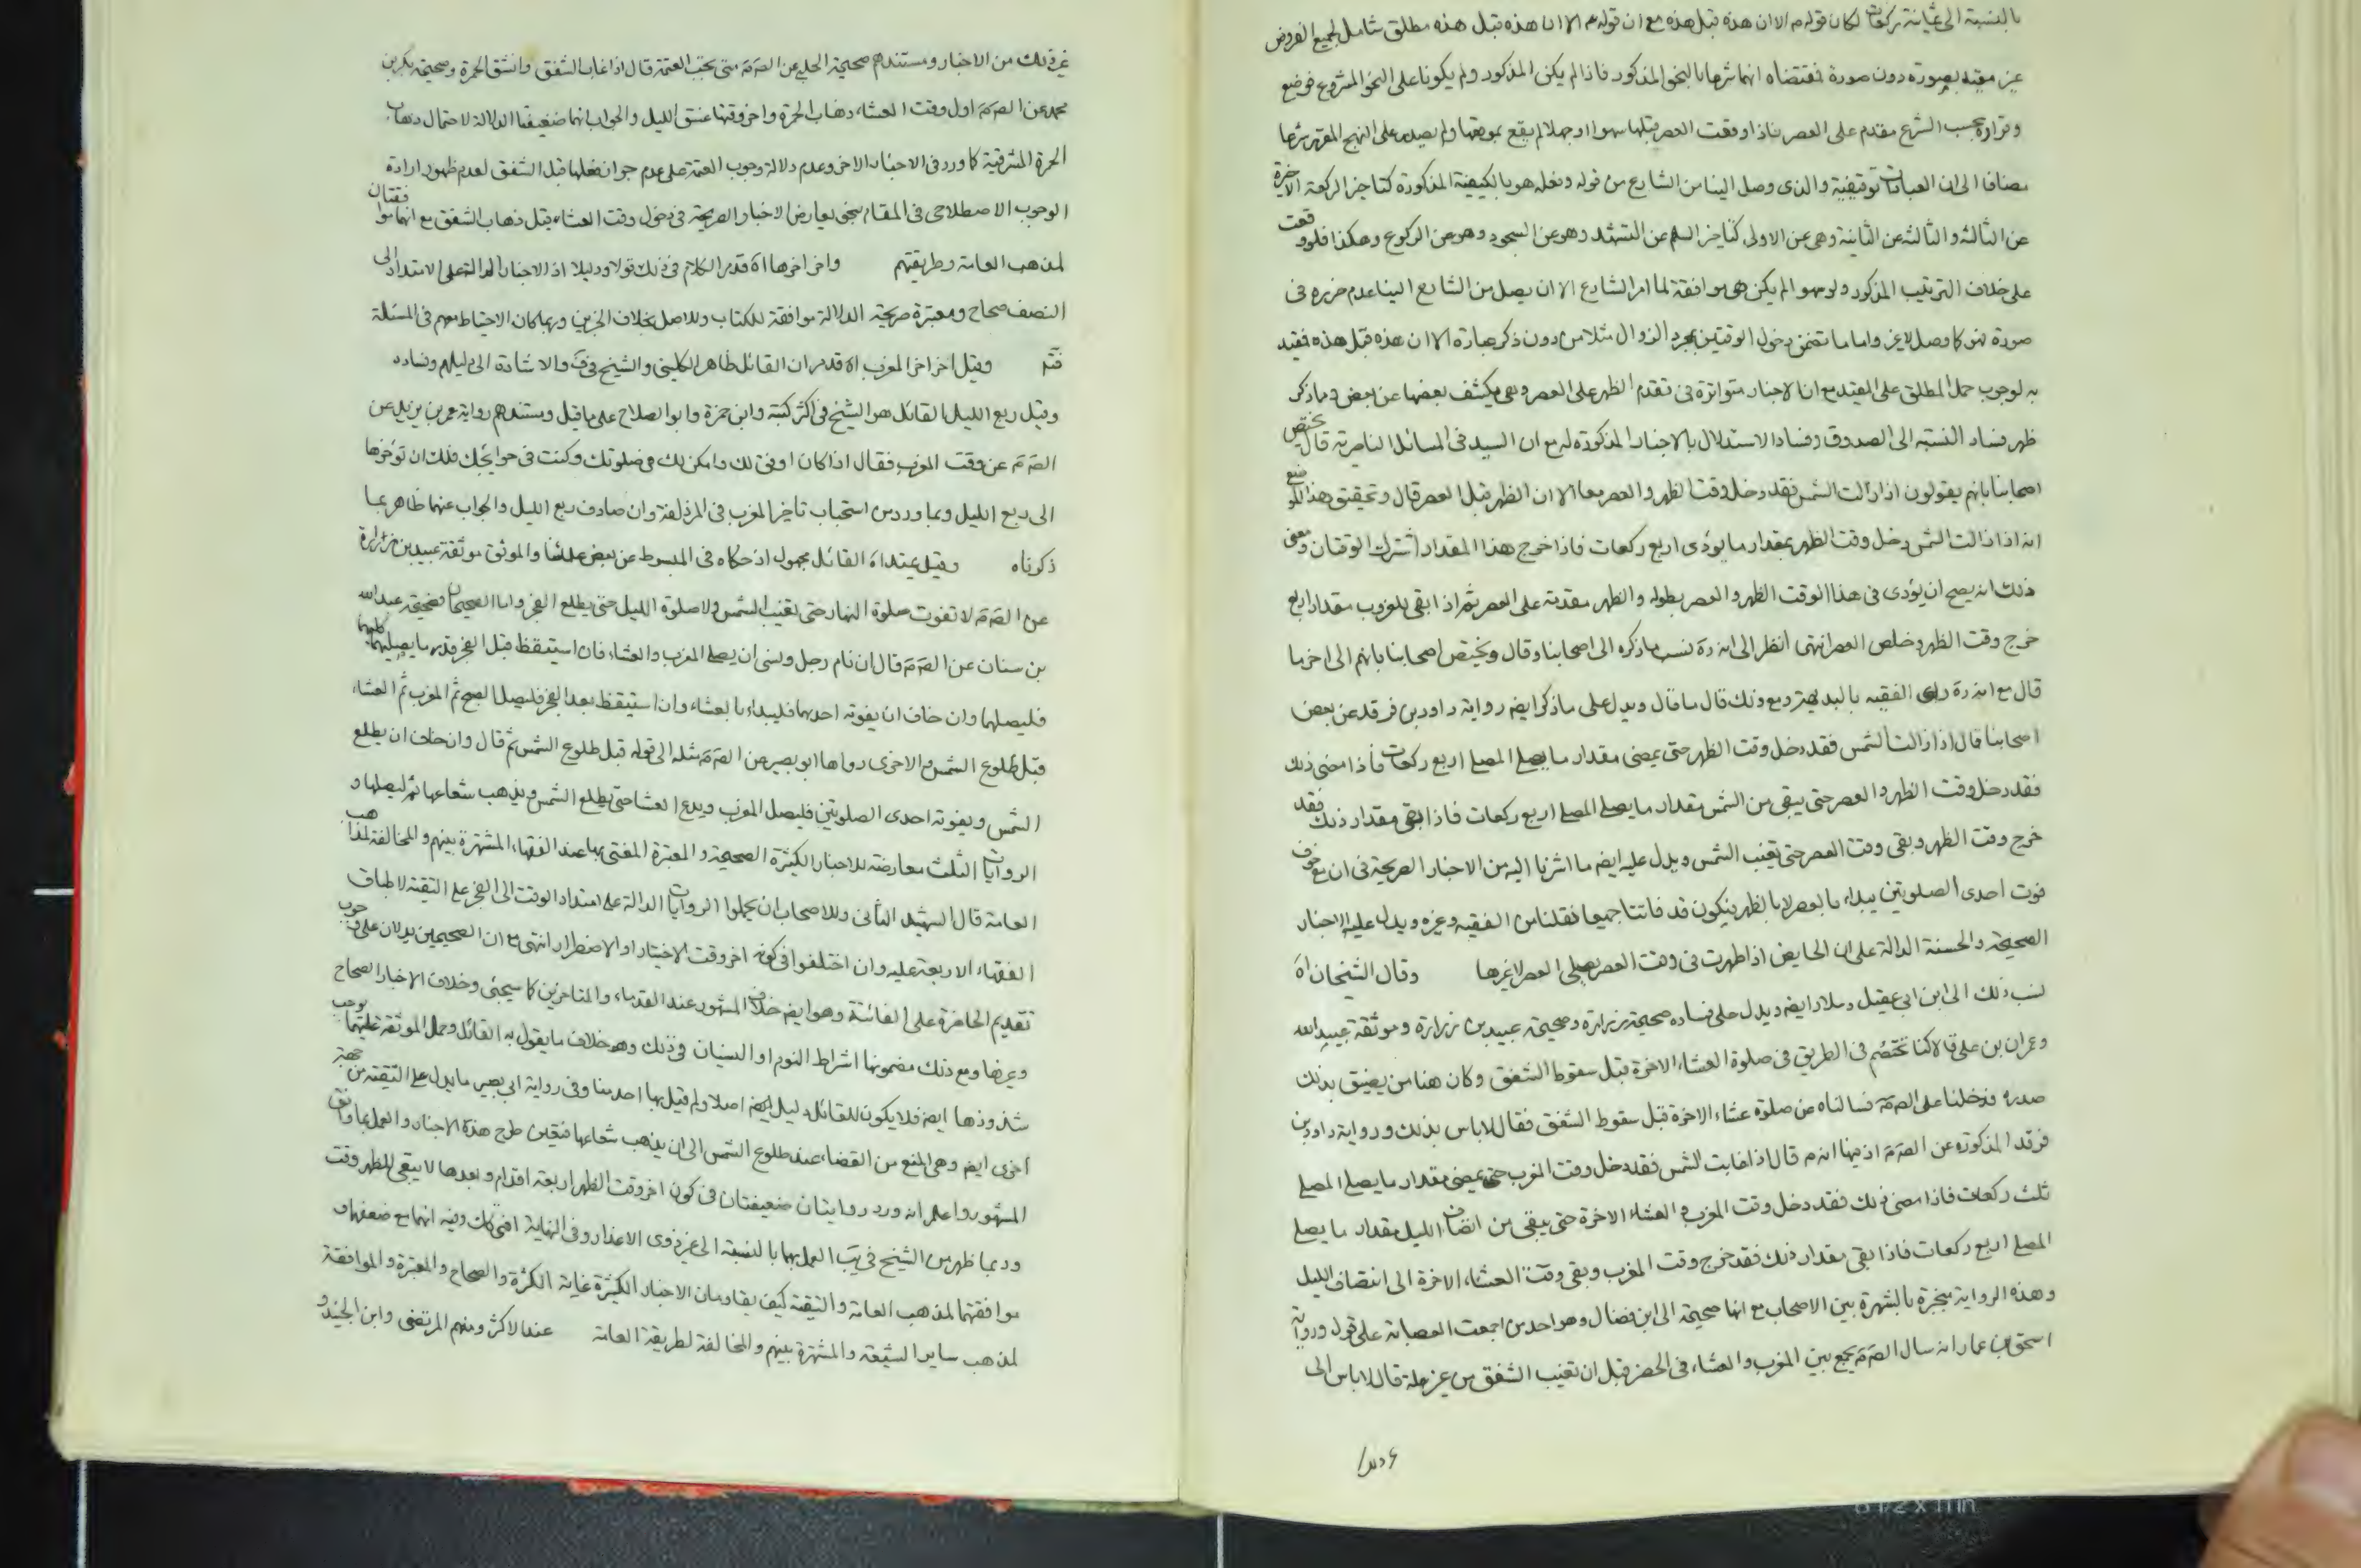 بالنسبة الى ثمانية ركعات لكان قوله م الا ان هذه قبل هذه مع ان قوله م الا ان هذه قبل هذه مطلق شامل لجميع الفروض
غير مقيد بصورة دون صورة فمقتضاه انهما شرعا بالنحو المذكور فاذا لم يكن المذكور ولم يكونا على النحو المشروع فوضع
وقراره بحسب الشرع مقدم على العصر فاذا وقعت العصر قبلها سهوا او جهلا لم يقع بموضعها ولم يصدر على النهج المقرر شرعا
مضافا الى ان العبادات توقيفية والذى وصل الينا من الشارع من قوله وفعله هو بالكيفية المذكورة كتاخير الركعة الاخيرة
عن الثالثة والثالثة عن الثانية وهى عن الاولى كتاخير السلم عن التشهد وهو عن السجود وهو عن الركوع وهكذا فلو وقعت
على خلاف الترتيب المذكور ولو سهوا لم يكن هى موافقة لما امر الشارع الا ان يصل من الشارع الينا عدم ضرره فى
صورة فهو كما وصل لا غير واما ما تضمن دخول الوقتين بمجرد الزوال مثلا من دون ذكر عبارة الا ان هذه قبل هذه فقيد
به لوجوب حمل المطلق على المقيد مع ان الاخبار متواترة فى تقدم الظهر على العصر وهى يكشف بعضها عن بعض ومما ذكر
ظهر فساد النسبة الى الصدوق وفساد الاستدلال بالاخبار المذكورة له مع ان السيد فى المسائل الناصرية قال يختص
اصحابنا بانهم يقولون اذا زالت الشمس فقد دخل وقت الظهر والعصر معا الا ان الظهر قبل العصر قال وتحقيق هذا الموضع
انه اذا زالت الشمس دخل وقت الظهر بمقدار ما يؤدى اربع ركعات فاذا خرج هذا المقدار اشترك الوقتان ومعنى
ذلك انه يصح ان يؤدى فى هذا الوقت الظهر والعصر بطوله والظهر مقدمة على العصر ثم اذا بقى للغروب مقدار اربع
خرج وقت الظهر وخلص العصر انتهى انظر الى انه ره نسب ما ذكره الى اصحابنا وقال ويختص اصحابنا بانهم الى اخر ما
قال مع انه ره راى الفقيه بالبديهة ومع ذلك قال ما قال ويدل على ما ذكر ايضه رواية داود بن فرقد عن بعض
اصحابنا قال اذا زالت الشمس فقد دخل وقت الظهر حتى يمضى مقدار ما يصلى المصلى اربع ركعات فاذا مضى ذلك
فقد دخل وقت الظهر والعصر حتى يبقى من الشمس مقدار ما يصلى المصلى اربع ركعات فاذا بقى مقدار ذلك فقد
خرج وقت الظهر وبقى وقت العصر حتى تغيب الشمس ويدل عليه ايضه ما اشرنا اليه من الاخبار الصريحة فى ان مع خوف
فوت احدى الصلوتين يبدء بالعصر لا بالظهر فيكون قد فاتتا جميعا فقلنا من الفقيه وغيره ويدل عليه الاخبار
الصحيحة والحسنة الدالة على ان الحايض اذا طهرت فى وقت العصر يصلى العصر لا غيرها وقال الشيخان اه
نسب ذلك الى ابن ابى عقيل وسلار ايضه ويدل على فساده صحيحة زرارة وصحيحة عبيد بن زرارة وموثقة عبيد الله
وعمران بن على قالا كنا نختصم فى الطريق فى صلوة العشاء الاخرة قبل سقوط الشفق وكان هنا من يضيق بذلك
صدره فدخلنا على الصم فسالناه عن صلوة عشاء الاخرة قبل سقوط الشفق فقال لا باس بذلك ورواية داود بن
فرقد المذكورة عن الصم اذ فيها انه م قال اذا غابت الشمس فقد دخل وقت المغرب حتى يمضى مقدار ما يصلى المصلى
ثلث ركعات فاذا مضى ذلك فقد دخل وقت المغرب والعشاء الاخرة حتى يبقى من انتصاف الليل مقدار ما يصلى
المصلى اربع ركعات فاذا بقى مقدار ذلك فقد خرج وقت المغرب وبقى وقت العشاء الاخرة الى انتصاف الليل
وهذه الرواية منجبرة بالشهرة بين الاصحاب مع انها صحيحة الى ابن فضال وهو احد من اجمعت العصابة على قول ورواية
اسحق بن عمار انه سال الصم يجمع بين المغرب والعشاء فى الحضر قبل ان تغيب الشفق من غير علة قال لا باس الى
غير ذلك من الاخبار ومستندهم صحيحة الحلبى عن الصم متى يجب العتمة قال اذا غاب الشفق والشفق الحمرة وصحيحة بكر بن
محمد عن الصم اول وقت العشاء ذهاب الحمرة واخر وقتها غسق الليل والجواب انهما ضعيفتا الدلالة لاحتمال ذهاب
الحمرة المشرقية كما ورد فى الاخبار الاخر وعدم دلالة وجوب العتمة على عدم جواز فعلها قبل الشفق لعدم ظهور ارادة
الوجوب الاصطلاحى فى المقام بنحو يعارض الاخبار الصريحة فى دخول وقت العشاء قبل ذهاب الشفق مع انهما موافقتان
لمذهب العامة وطريقتهم واخر اخرها اه قد مر الكلام فى ذلك قولا ودليلا اذ الاخبار الدالة على الامتداد الى
النصف صحاح ومعتبرة صريحة الدلالة موافقة للكتاب وللاصل بخلاف الاخرين وربما كان الاحتياط معهم فى المسئلة
فتم وقيل اخر اخر المغرب اه قد مر ان القائل ظاهر الكلينى والشيخ فى ف والاشارة الى دليلهم وفساده
وقيل ربع الليل القائل هو الشيخ فى اكثر كتبه وابن حمزة وابو الصلاح على ما قيل ومستندهم رواية عمر بن يزيد عن
الصم عن وقت المغرب فقال اذا كان اوفق لك وامكن لك فى صلوتك وكنت فى حوايجك فلك ان تؤخرها
الى ربع الليل وبما ورد من استحباب تاخير المغرب فى المزدلفة وان صادف ربع الليل والجواب عنهما ظاهر بما
ذكرناه وقيل يمتد اه القائل مجهول اذ حكاه فى المبسوط عن بعض علمائنا والموثق موثقة عبيد بن زرارة
عن الصم لا تفوت صلوة النهار حتى تغيب الشمس ولا صلوة الليل حتى يطلع الفجر واما الصحيحان فصحيحة عبد الله
بن سنان عن الصم قال ان نام رجل ونسى ان يصلى المغرب والعشاء فان استيقظ قبل الفجر قدر ما يصليهما كلتيهما
فليصلهما وان خاف ان يفوته احدهما فليبدء بالعشاء وان استيقظ بعد الفجر فليصل الصبح ثم المغرب ثم العشاء
قبل طلوع الشمس والاخرى رواها ابو بصير عن الصم مثله الى قوله قبل طلوع الشمس ثم قال وان خاف ان يطلع
الشمس ويفوته احدى الصلوتين فليصل المغرب ويدع العشا حتى يطلع الشمس ويذهب شعاعها ثم ليصلها و
الروايات الثلث معارضة للاخبار الكثيرة الصحيحة والمعتبرة المفتى بها عند الفقهاء المشتهرة بينهم والمخالفة لمذهب
العامة قال الشهيد الثانى وللاصحاب ان يحملوا الروايات الدالة على امتداد الوقت الى الفجر على التقية لاطباق
الفقهاء الاربعة عليه وان اختلفوا فى كونه اخر وقت الاختيار او الاضطرار انتهى مع ان الصحيحين يدلان على وجوب
تقديم الحاضرة على الفائتة وهو ايضه خلاف المشهور عند القدماء والمتاخرين كما سيجئ وخلاف الاخبار الصحاح
وغيرها ومع ذلك مضمونها اشتراط النوم او النسيان فى ذلك وهو خلاف ما يقول به القائل وحمل الموثقة عليهما يوجب
شذوذها ايضه فلا يكون للقائل دليل ايضه اصلا ولم يقل بها احد منا وفى رواية ابى بصير ما يدل على التقية من جهة
اخرى ايضه وهى المنع من القضاء عند طلوع الشمس الى ان يذهب شعاعها فتعين طرح هذه الاخبار والعمل بما وافق
المشهور واعلم انه ورد روايتان ضعيفتان فى كون اخر وقت الظهر اربعة اقدام وبعدها لا يبقى للظهر وقت
وربما ظهر من الشيخ فى يب العمل بهما بالنسبة الى غير ذوى الاعذار وفى النهاية افتى كك وفيه انهما مع ضعفهما و
موافقتهما لمذهب العامة والتقية كيف يقاومان الاخبار الكثيرة غاية الكثرة والصحاح والمعتبرة والموافقة
لمذهب ساير الشيعة والمشتهرة بينهم والمخالفة لطريقة العامة عند الاكثر ومنهم المرتضى وابن الجنيد و